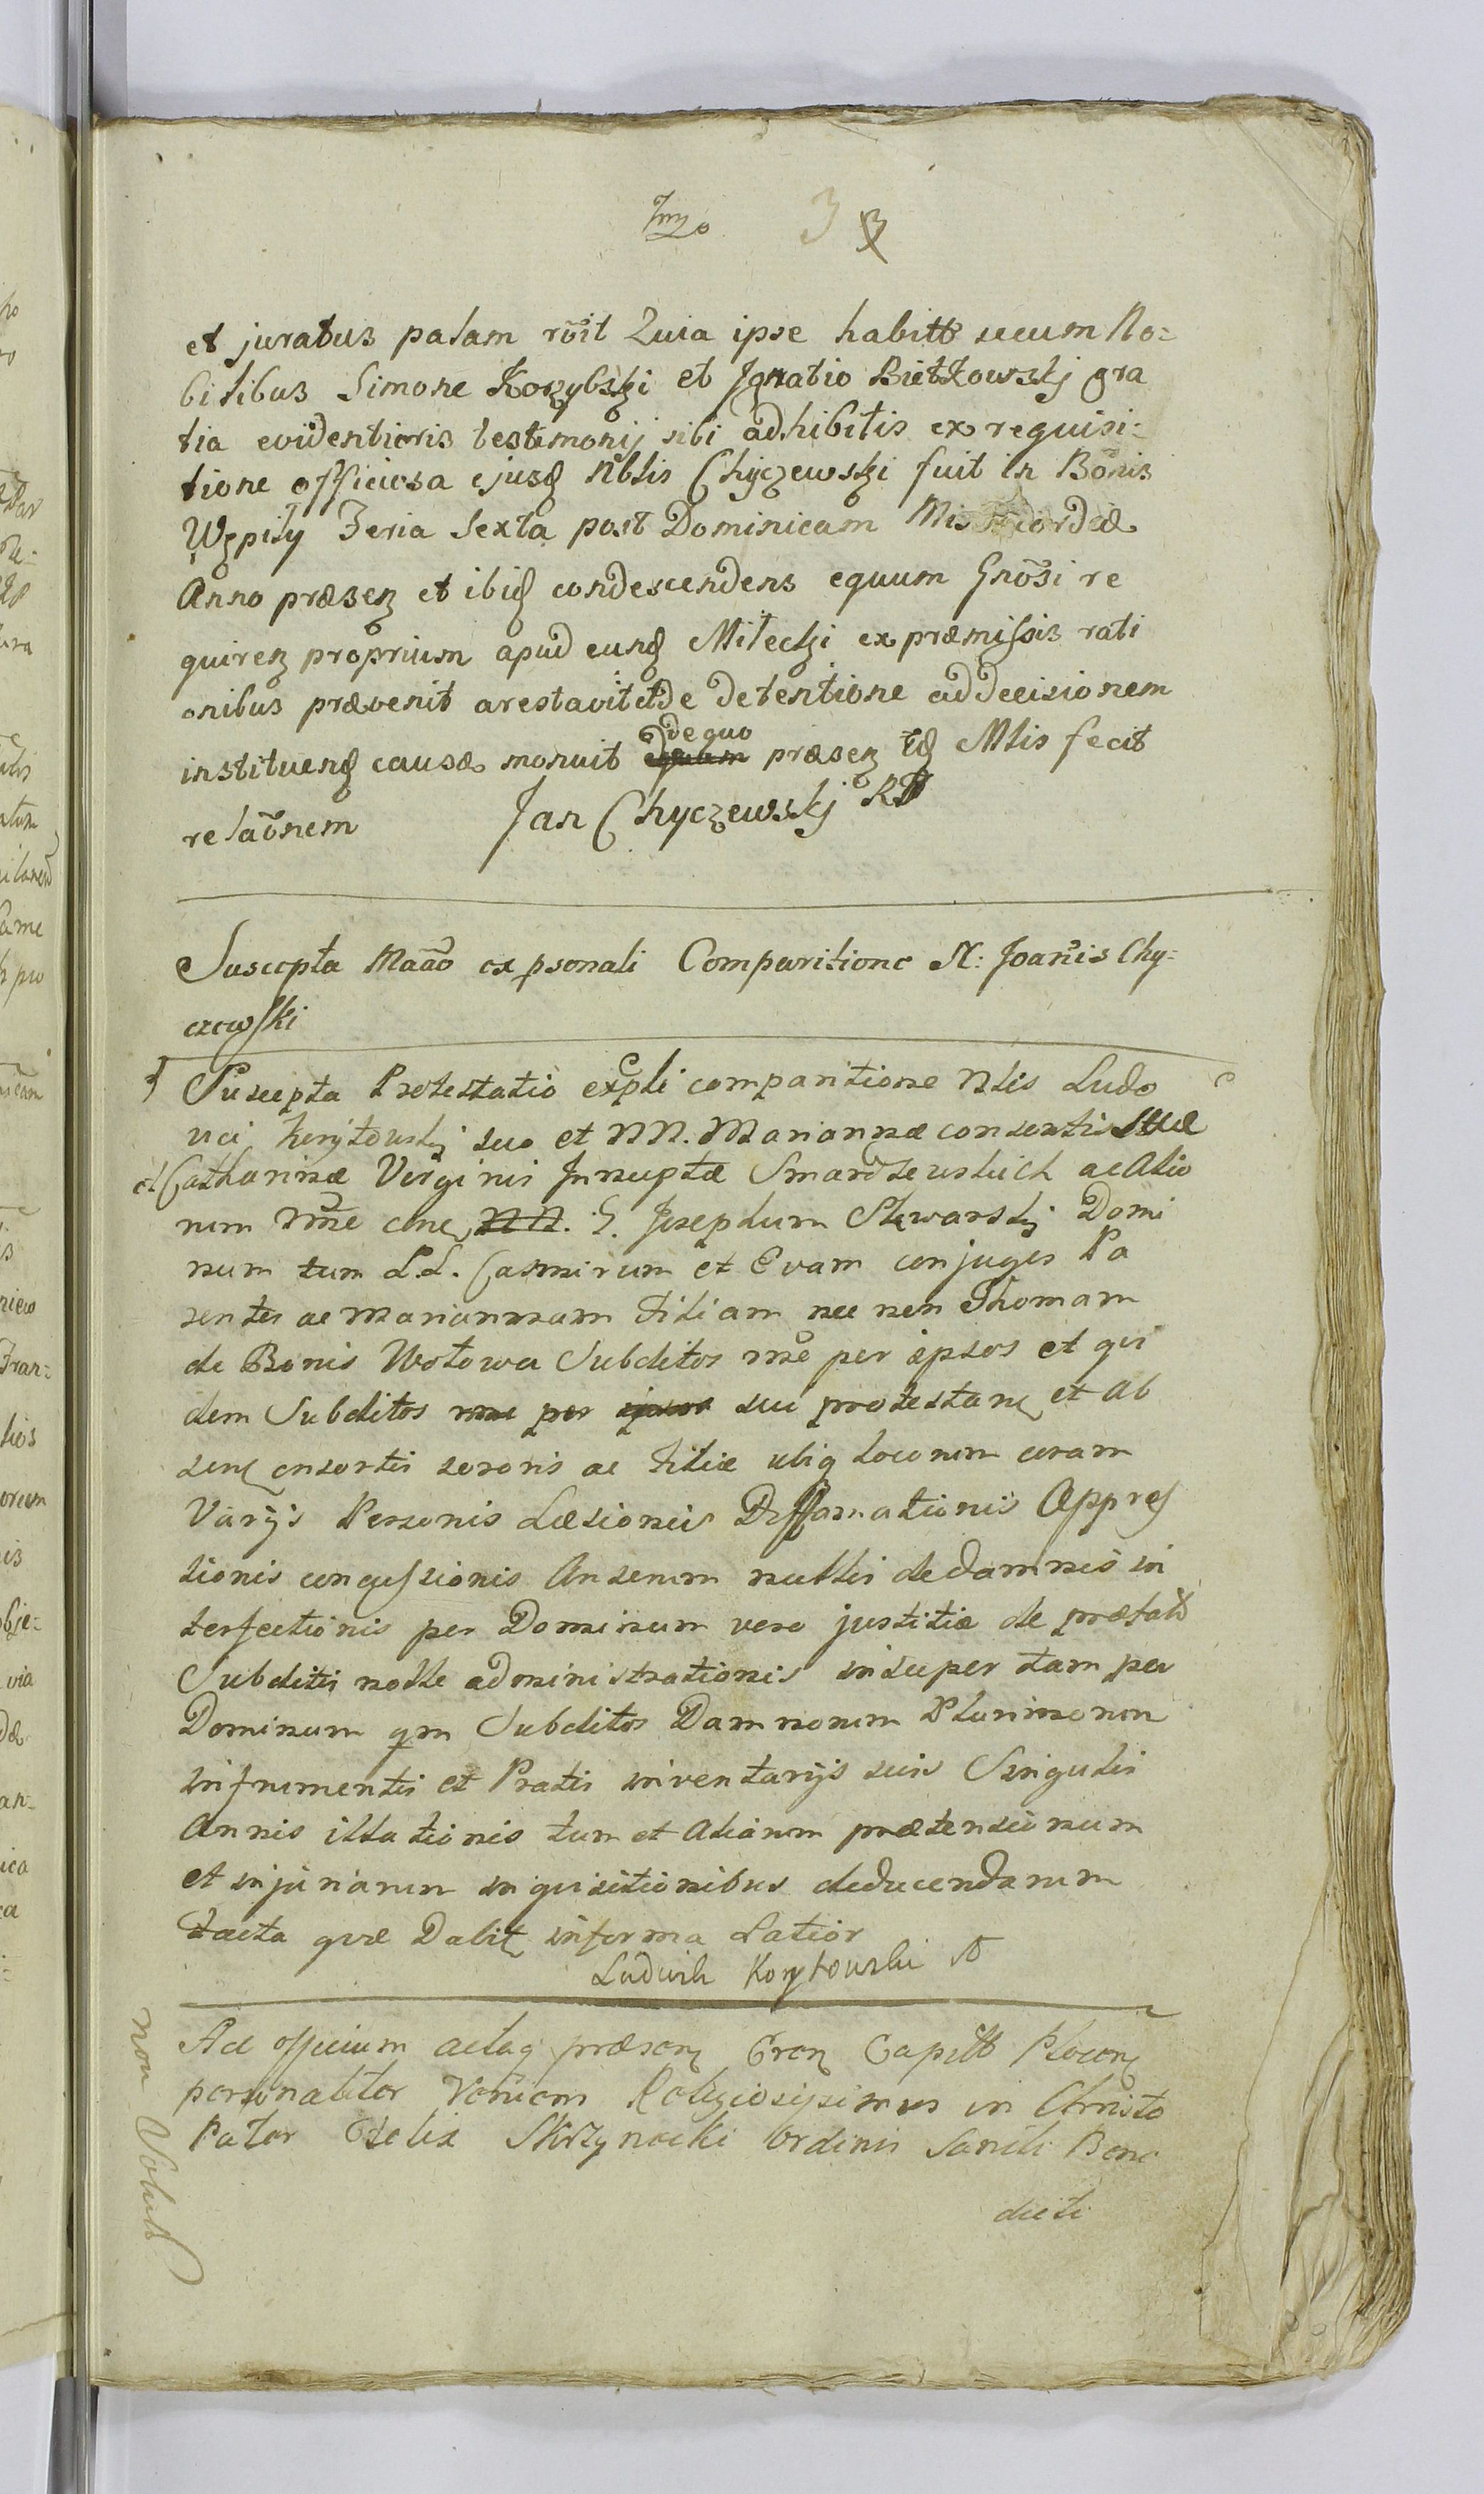 3
et juratus palam rōit Quia ipse habitt secum No=
bilibus Simone Korzybski et Ignatio Bietkowskj gra
tia evidentioris testimonij sibi adhibitis ex requisi=
tione officiosa ejusq Nblis Chyczewski fuit in Bōnis
Wępiły Feria Sexta post Dominicam Misericordiæ
Anno præsenz et ibiq condescendens equum Gnōsi re
quirenz proprium apud eunq Mileckj ex præmissis rati
onibus prævenit arestavit et de detentione ad decisionem
instituenq causæ monuit de quo præsenz Mlis fecit
relaōnem Jan Chyczewskj
Suscepta Maāo ex psonali Comparitione N: Joañis Chy=
czewski
Suscepta Protestatio ex pli comparitione Nlis Ludo
vici suo et NN. Mariannæ consortis suæ
et Catharinæ Virginis Innuptæ ac Alio
rum nne cine NN. G. Josephum Domi
num tum L.L. Casimirum et Evam conjuges Pa
rentes ac Mariannam Filiam nec non Thomam
de Bonis Wotowa Subditos nne per ipsos et qui
dem Subditos nne per ipsos sui protestan et ab
sen consortis sororis ac Filiæ ubiq locorum coram
Varijs Personis Læsionis Diffamationis Appres
sionis concussionis Anserum nullis de damnis in
terfectionis per Dominum vero justitiæ de præfatis
Subditis nolle administrationis insuper tam per
Dominum qm Subditos Damnorum Plurimorum
in frumentis et Pratis inventarijs suis Singulis
Annis illationis tum et Aliarum prætensionum
et injuriarum inquisitionibus deducendarum
facta quæ Dabit in forma Latior
Ludwik Korytowski
Ad officium actaq præsenz Capitt Plocenz
personaliter Veniens Religiosissimus in Christo
Pater Felix Skrzynecki Ordinis Sancti Bene
dicti
non Soluit